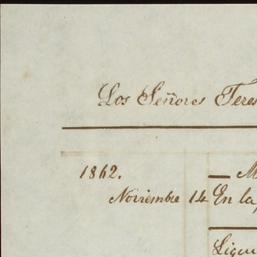 Los Señores Teres
1862. — M
Noviembre 14 En la
Liqu